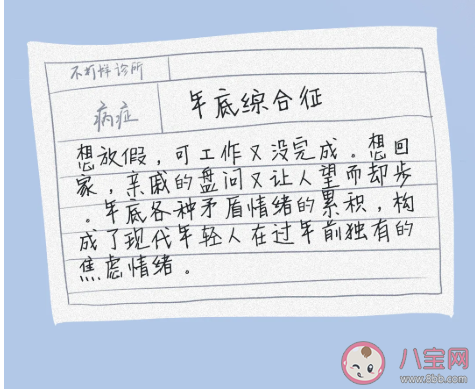 不打烊诊所
病症
年底综合征
想放假，可工作又没完成。想回
家，亲戚的盘问又让人望而却步
。年底各种矛盾情绪的累积，构
成了现代年轻人在过年前独有的
焦虑情绪。
八宝网
www.8bb.com